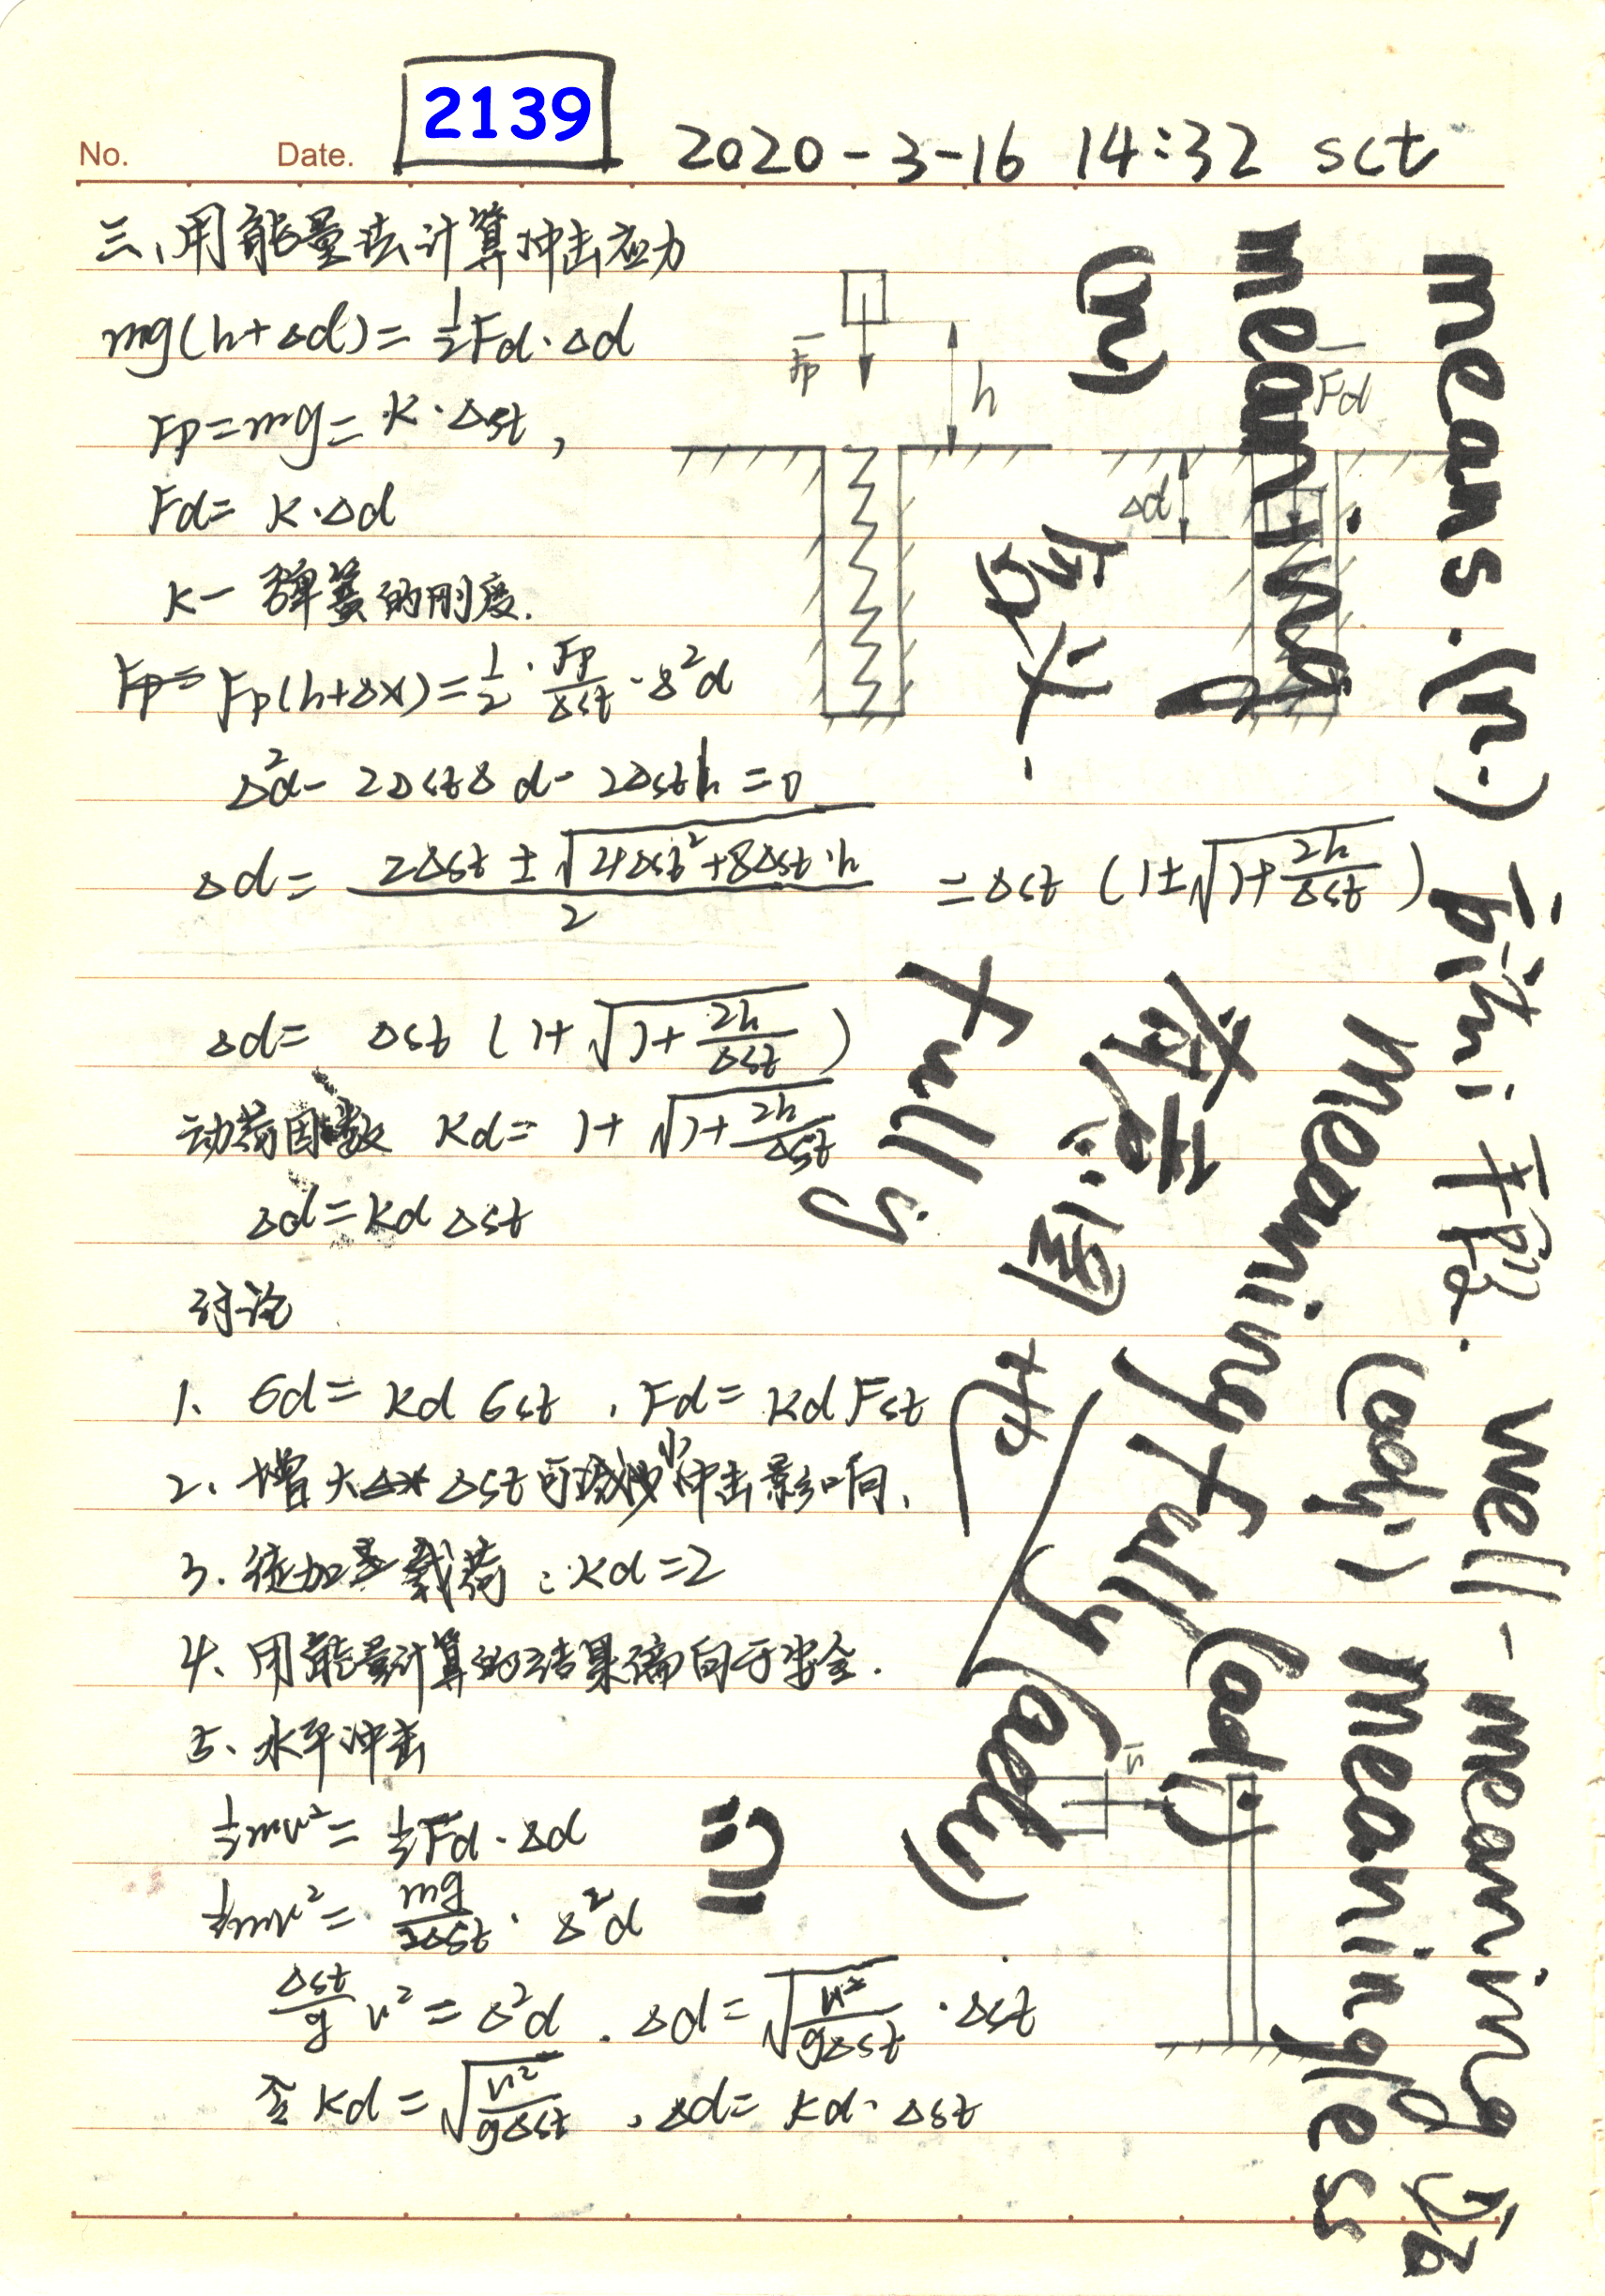 2139
No. Date. 2020-3-16 14:32 sct
三、用能量法计算冲击应力
mg(h+Δd)=½Fd·Δd
Fp=mg=K·Δst,
Fd=K·Δd
K一弹簧的刚度.
Fp(h+Δx)=1/2·Fp/Δst·Δ²d
Δ²d-2ΔstΔd-2Δsth=0
Δd=(2Δst±√(4Δst²+8Δst·h))/2=Δst(1±√(1+2h/Δst))
Δd=Δst(1+√(1+2h/Δst))
动荷因数 Kd=1+√(1+2h/Δst)
Δd=KdΔst
讨论
1、σd=Kdσst,Fd=KdFst
2、增大Δst可减少冲击影响、
3.徒加载荷:Kd=2
4、用能量计算的结果偏向于安全.
5、水平冲击
½mv²=½Fd·Δd
½mv²=mg/2Δst·Δ²d
Δst/g v²=Δ²d.Δd=√(v²/gΔst)·Δst
令Kd=√(v²/gΔst),Δd=Kd·Δst
Fp
h
Fd
Δd
means.(n.) 手段.
well-meaning
meaning (n) 含义.
meaningfully (adj)
(adj) meaningless
有意图
fully
(adv)